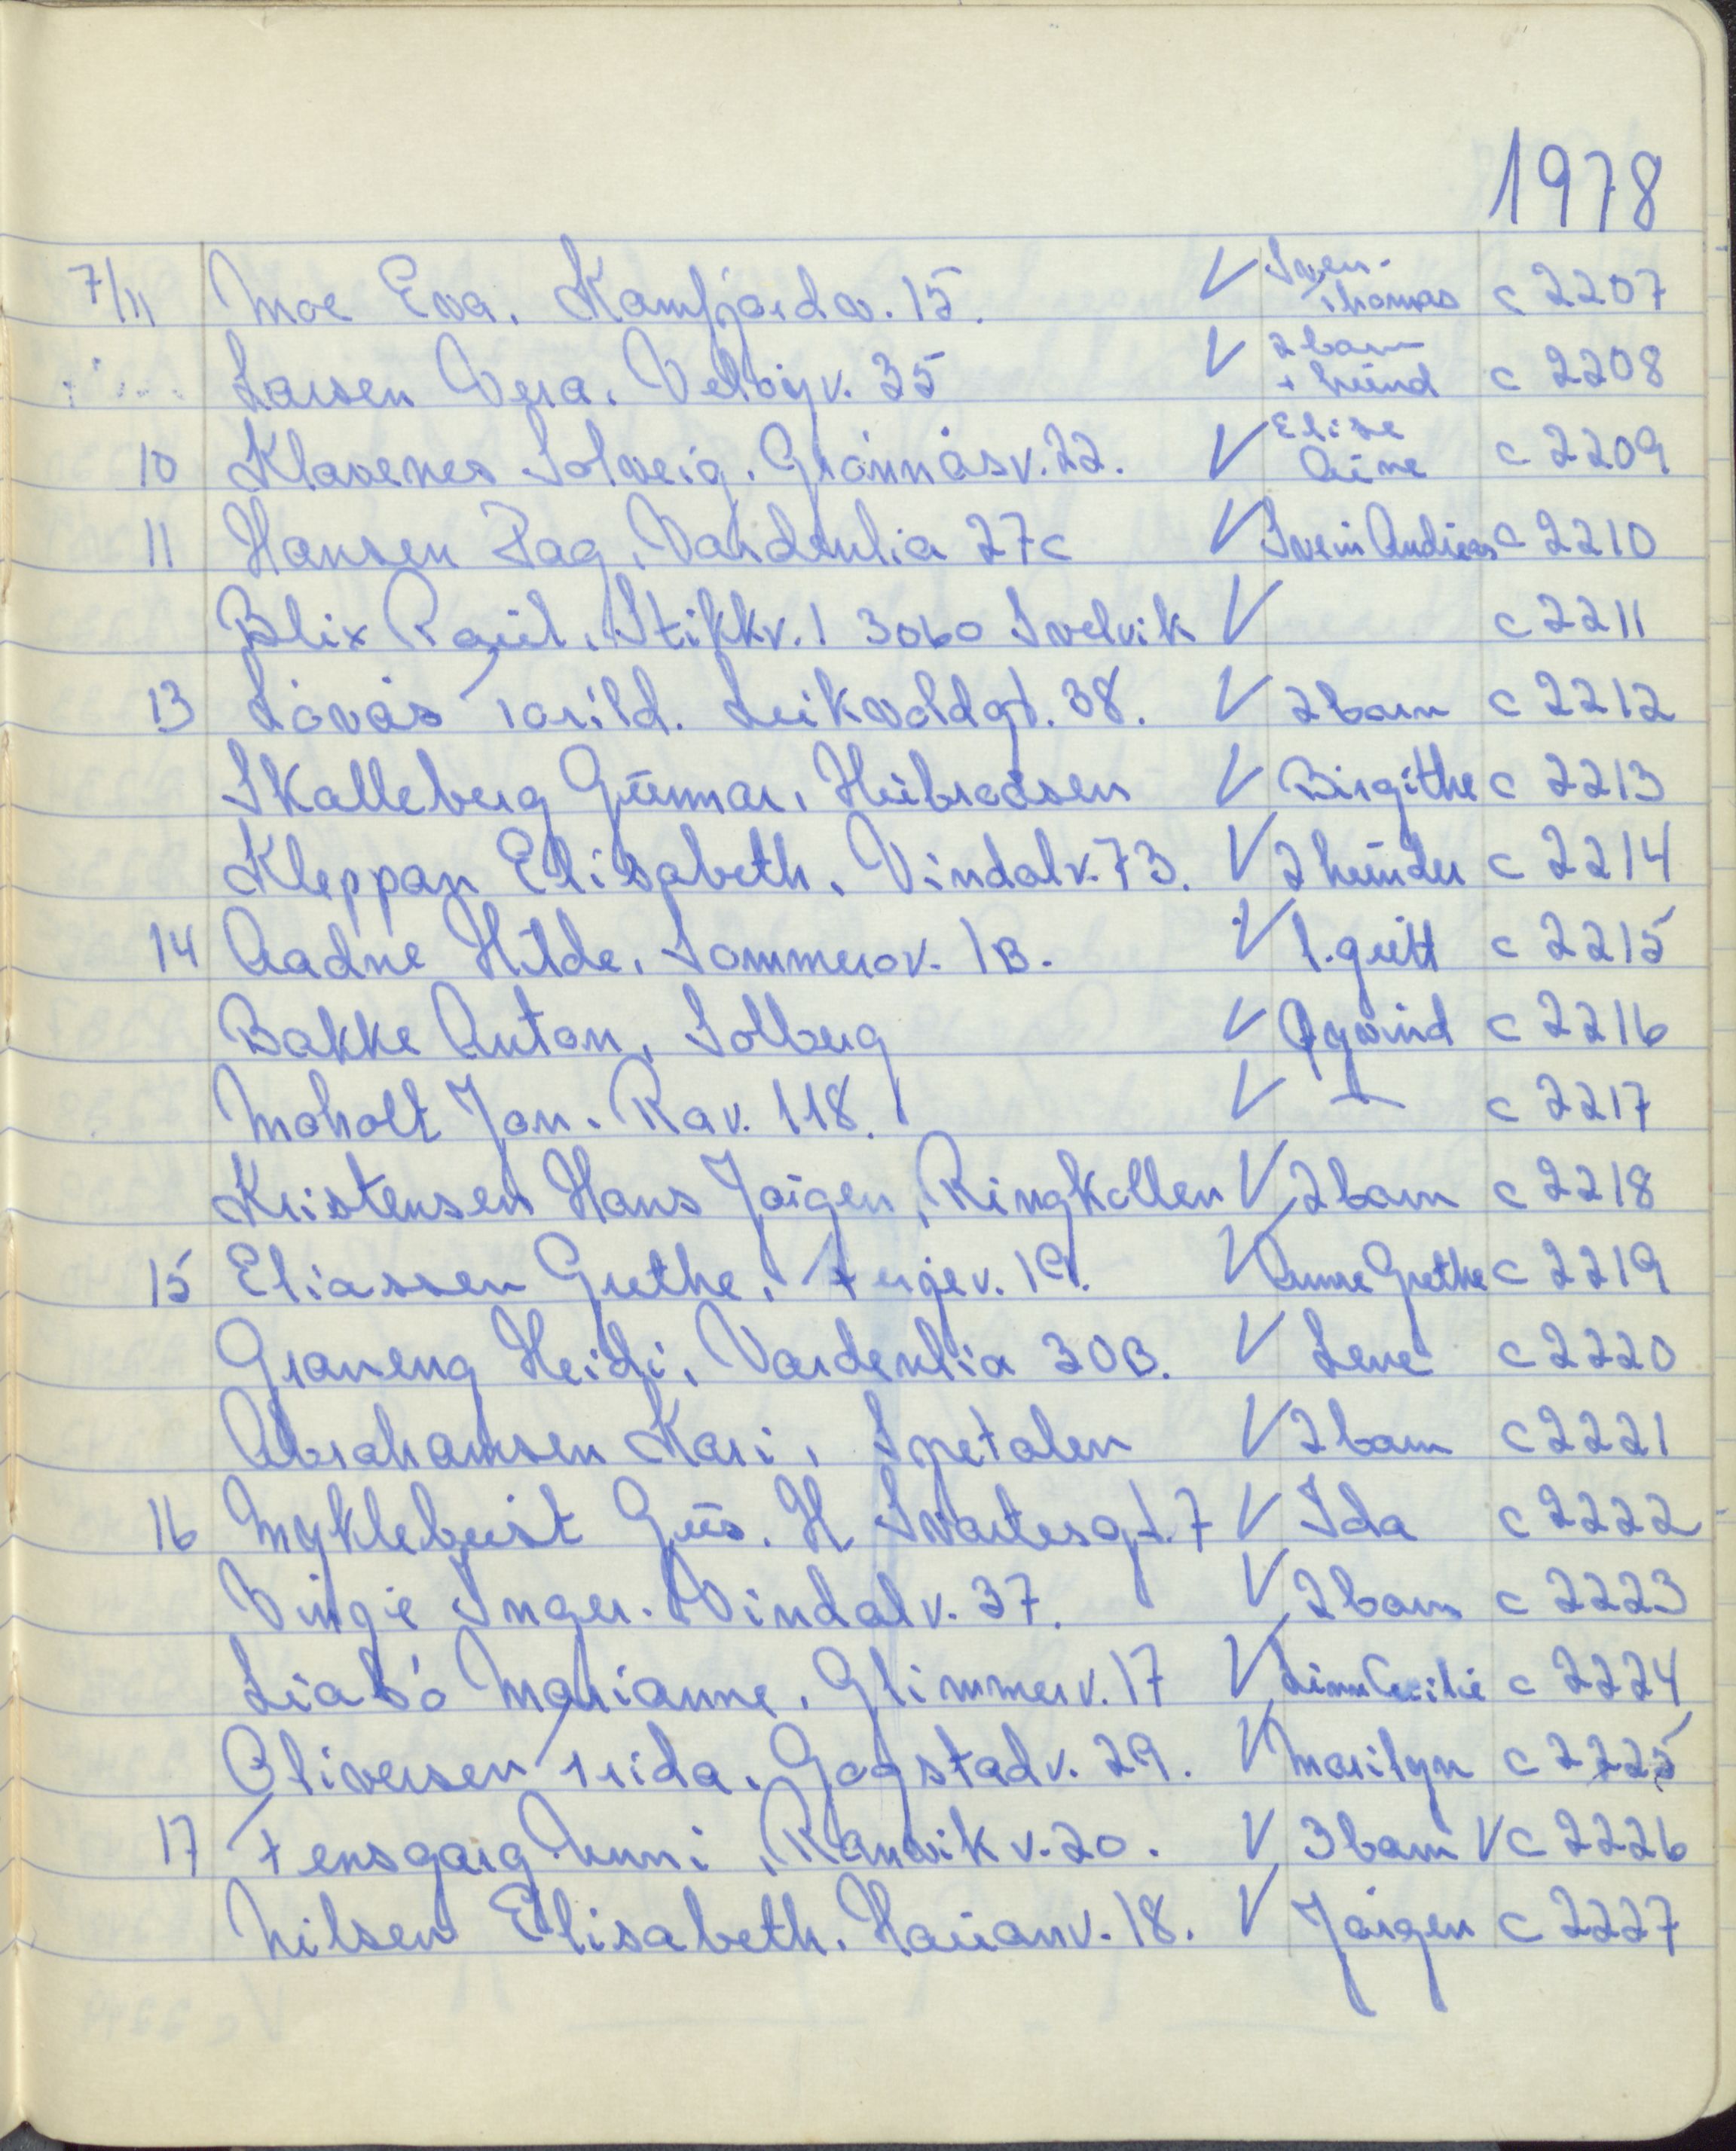 1978
7/11 Moe Eva. Kamfjordv. 15. V Sven-Thomas c 2207
Larsen Vera. Veløyv. 35 V 2 barn + hund c 2208
10 Klavenes Solveig. Grønnåsv. 22. V Elise Aune c 2209
11 Hansen Dag, Vardenlia 27c V Svein Andreas c 2210
Blix Raül, Stikkv. 1 3060 Svelvik V c 2211
13 Løvås Torild. Leikvoldgt. 38. V 2 barn c 2212
Skalleberg Gunnar, Hübrodsen V Birgithe c 2213
Kleppan Elisabeth. Vindalv. 73. V 2 hunder c 2214
14 Aadne Hilde. Sommerov. 1B. V 1. gutt c 2215
Bakke Anton, Solberg V Øyvind c 2216
Moholt Jan. Rav. 118. V c 2217
Kristensen Hans Jørgen, Ringkollen V 2 barn c 2218
15 Eliassen Grethe, Fergev. 19. V Anne Grethe c 2219
Graneng Heidi, Vardenlia 30B. V Lene c 2220
Abrahamsen Kari, Spetalen V 2 barn c 2221
16 Myklebust Gus. H Svartesgt. 7 V Ida c 2222
Vinje Inger. Vindalv. 37. V 2 barn c 2223
Liabø Marianne. Glimmerv. 17 V Linn Cecilie c 2224
Oliversen Frida. Gogstadv. 29. V Marilyn c 2225
17 Fensgarg Unni, Ranvikv. 20. V 3 barn V c 2226
Nilsen Elisabeth. Haüanv. 18. V Jørgen c 2227